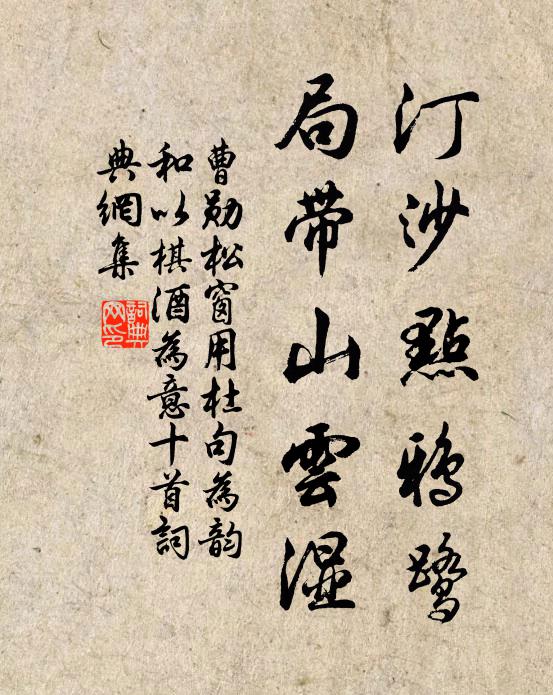 汀沙點鴉鷺
局帶山雲湿
曹勛松窗用杜句為韵
和以棋酒為意十首詞
典網集
詞典
网印